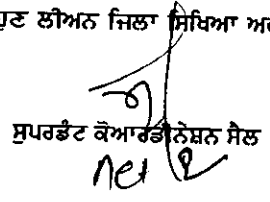 ਹੁਣ ਲੀਅਨ ਜਿਲਾ ਸਿਖਿਆ
ਸੁਪਰਡੰਟ ਕੋਆਰਡੀਨੇਸ਼ਨ ਸੈਲ